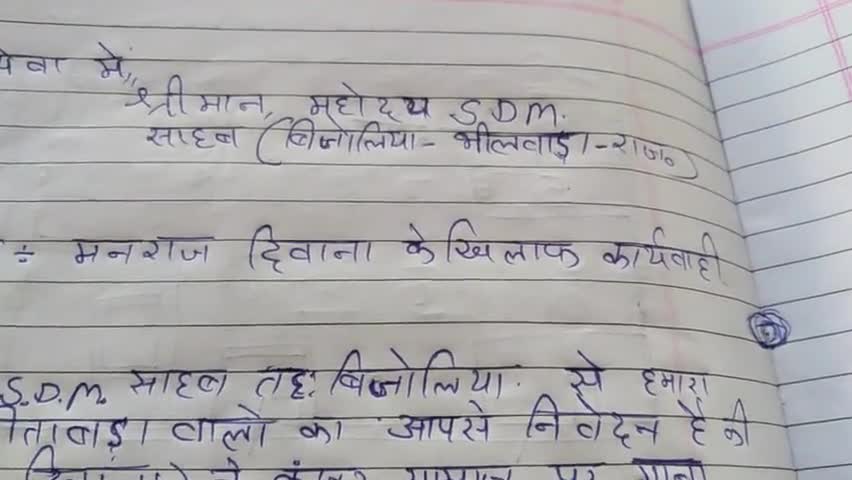 सेवा में,,
श्रीमान, महोदय S.D.M.
साहब (बिजोलिया - भीलवाड़ा - राज०)
÷ मनराज दिवाना के खिलाफ कार्यवाही
S.D.M. साहब तह: बिजोलिया. से हमारा
वालो का आपसे निवेदन है की
पर गाना